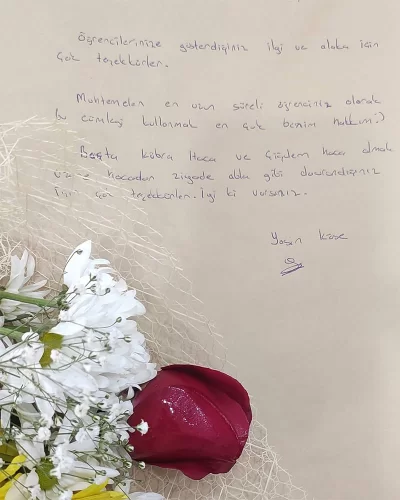 Öğrencilerinize gösterdiğiniz ilgi ve alaka için
çok teşekkürler.
Muhtemelen en uzun süreli öğrenciniz olarak
bu cümleyi kullanmak en çok benim hakkım:)
Başta Kübra Hoca ve Çiğdem hoca olmak
üzere hocadan ziyade abla gibi davrandığınız
için çok teşekkürler. İyi ki varsınız.
Yasin Köse